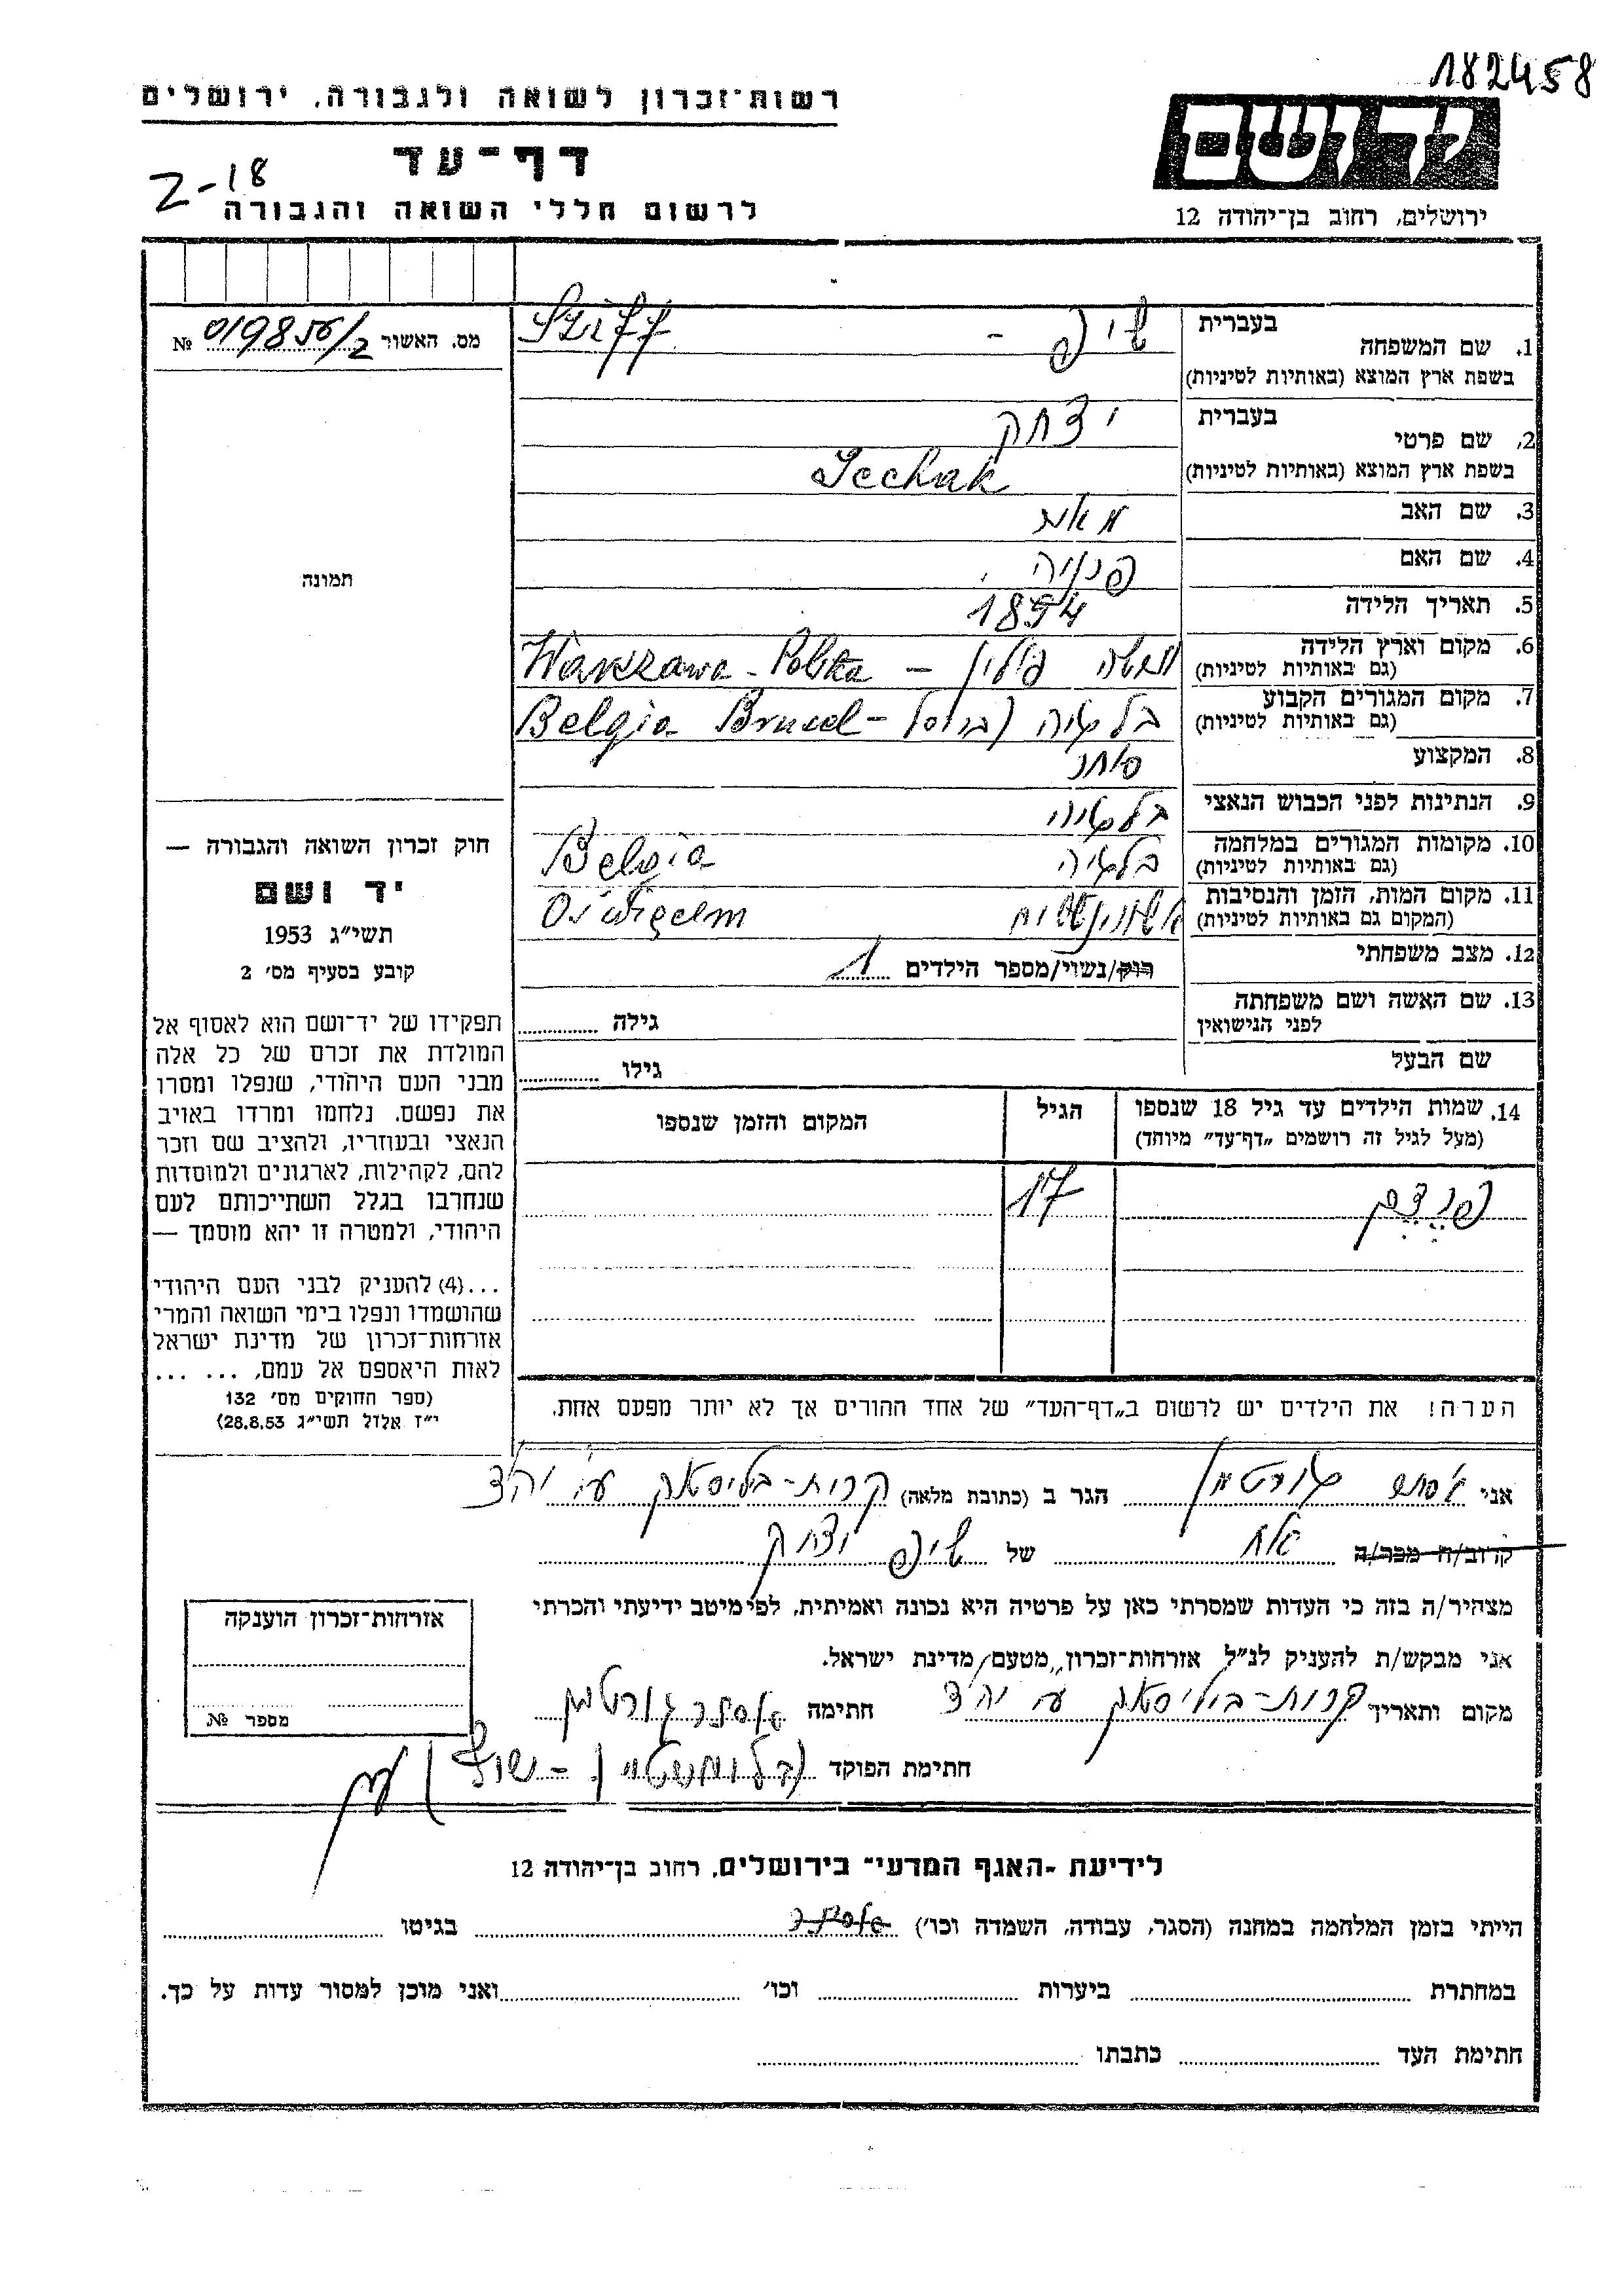 182458
רשות-זכרון לשואה ולגבורה, ירושלים
ידושם
דף-עד
Z-18
לרשום חללי השואה והגבורה
ירושלים, רחוב בן-יהודה 12
1. שם המשפחה בעברית שיף - Sziff
בשפת ארץ המוצא (באותיות לטיניות)
מס. האשור № 019856/2
2. שם פרטי בעברית יצחק
בשפת ארץ המוצא (באותיות לטיניות) Icchak
3. שם האב
4. שם האם
5. תאריך הלידה 1894
6. מקום וארץ הלידה (גם באותיות לטיניות) ורשה פולין - Warszawa - Polska
7. מקום המגורים הקבוע (גם באותיות לטיניות) בלגיה בריסל - Belgia Bruxel
8. המקצוע סוחר
9. הנתינות לפני הכבוש הנאצי בלגיה
10. מקומות המגורים במלחמה (גם באותיות לטיניות) בלגיה Belgia
11. מקום המות, הזמן והנסיבות (המקום גם באותיות לטיניות) אושוינצ'ים
12. מצב משפחתי רווק/נשוי/מספר הילדים 1
13. שם האשה ושם משפחתה לפני הנישואין גילה
שם הבעל גילו
תמונה
חוק זכרון השואה והגבורה —
יד ושם
תשי"ג 1953
קובע בסעיף מס' 2
תפקידו של יד-ושם הוא לאסוף אל
המולדת את זכרם של כל אלה
מבני העם היהודי, שנפלו ומסרו
את נפשם, נלחמו ומרדו באויב
הנאצי ובעוזריו, ולהציב שם וזכר
להם, לקהילות, לארגונים ולמוסדות
שנחרבו בגלל השתייכותם לעם
היהודי, ולמטרה זו יהא מוסמך —
...(4) להעניק לבני העם היהודי
שהושמדו ונפלו בימי השואה והמרי
אזרחות-זכרון של מדינת ישראל
לאות היאספם אל עמם, ... ...
(ספר החוקים מס' 132
י"ז אלול תשי"ג 28.8.53)
14. שמות הילדים עד גיל 18 שנספו
(מעל לגיל זה רושמים „דף-עד" מיוחד)
הגיל
המקום והזמן שנספו
17
הערה! את הילדים יש לרשום ב„דף-העד" של אחד ההורים אך לא יותר מפעם אחת.
אני אסתר גורטמן הגר ב (כתובת מלאה) קרית-ביאליסטוק
קרוב/ה מכר/ה אח של שיף יצחק
מצהיר/ה בזה כי העדות שמסרתי כאן על פרטיה היא נכונה ואמיתית, לפי מיטב ידיעתי והכרתי
אני מבקש/ת להעניק לנ"ל אזרחות-זכרון מטעם מדינת ישראל.
מקום ותאריך קרית-ביאליסטוק חתימה אסתר גורטמן
חתימת הפוקד
אזרחות-זכרון הוענקה
מספר №
לידיעת „האגף המדעי" בירושלים, רחוב בן-יהודה 12
הייתי בזמן המלחמה במחנה (הסגר, עבודה, השמדה וכו') בגיטו
במחתרת ביערות וכו' ואני מוכן למסור עדות על כך.
חתימת העד כתבתו